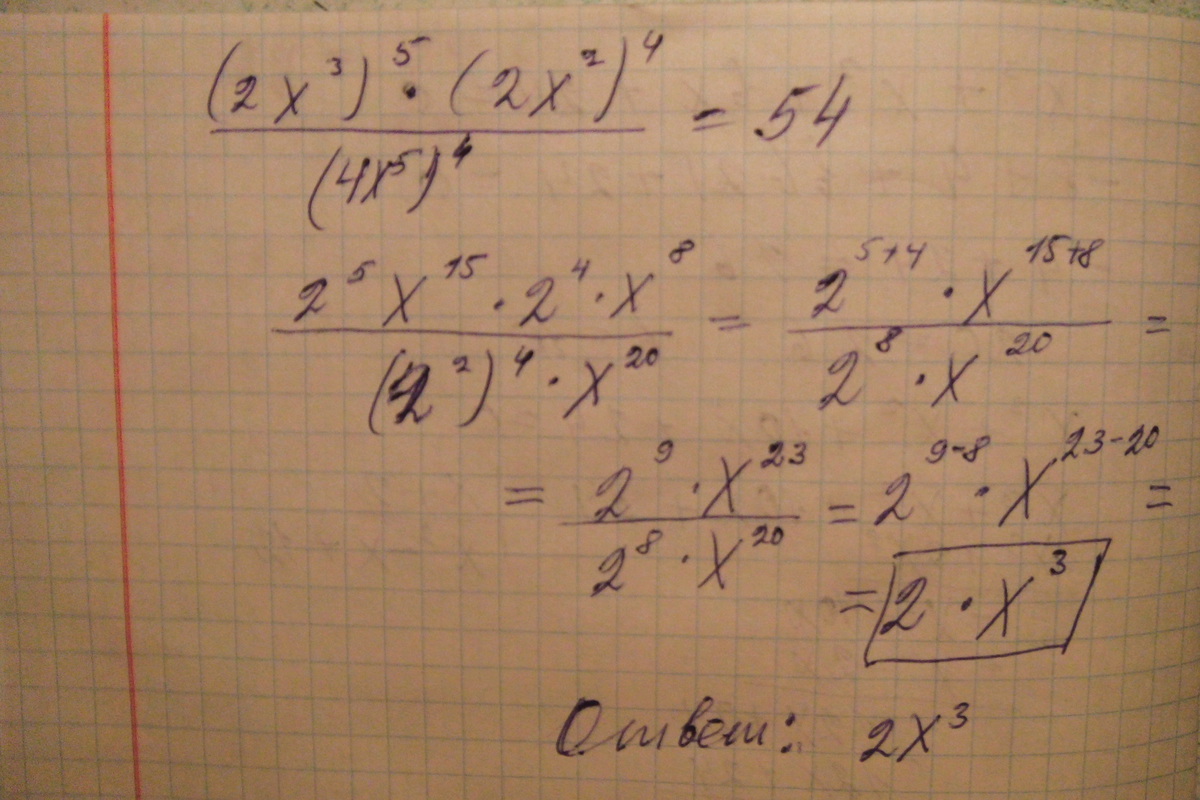 ((2x³)⁵ · (2x²)⁴) / (4x⁵)⁴ = 54
(2⁵x¹⁵ · 2⁴ · x⁸) / ((2²)⁴ · x²⁰) = (2⁵⁺⁴ · x¹⁵⁺⁸) / (2⁸ · x²⁰) =
= (2⁹ · x²³) / (2⁸ · x²⁰) = 2⁹⁻⁸ · x²³⁻²⁰ =
= 2 · x³
Ответ: 2x³